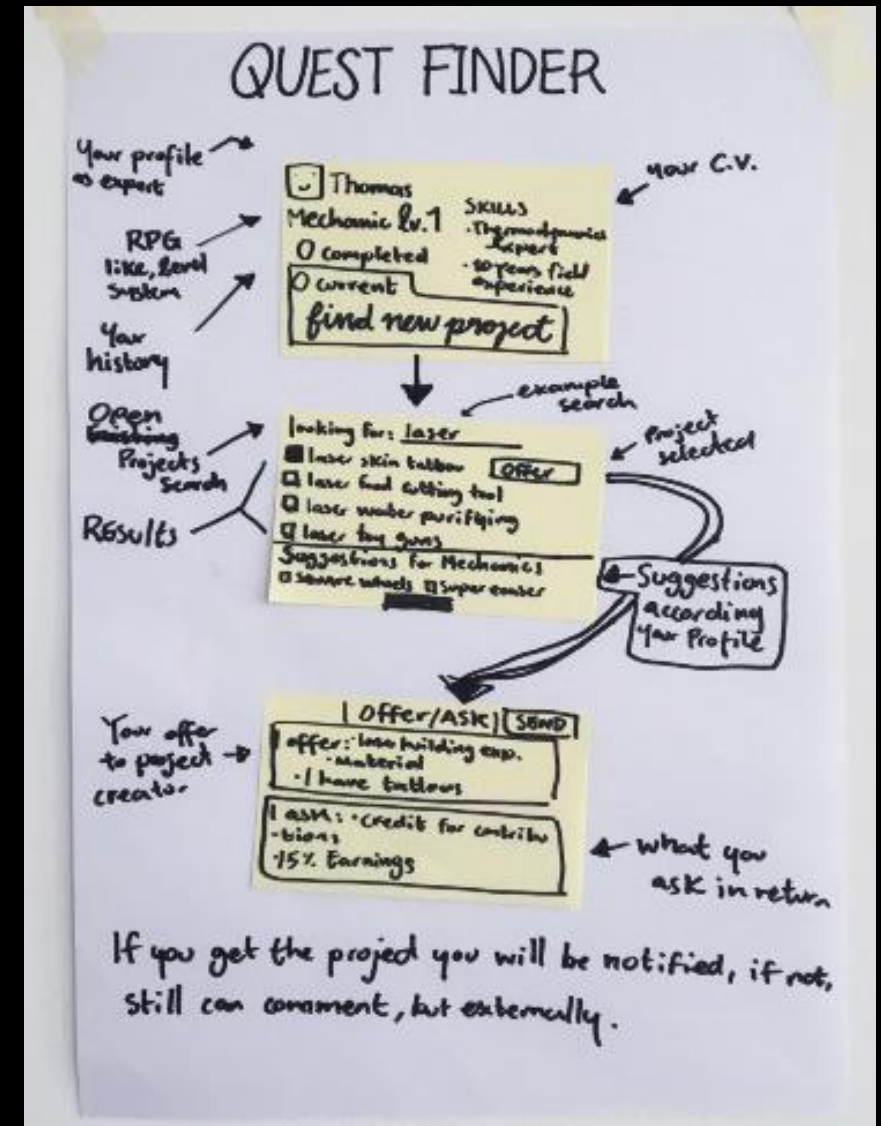 QUEST FINDER
Your profile
as expert
your C.V.
Thomas
Mechanic lv.1
0 completed
0 current
find new project
SKILLS
·Thermodynamics
Expert
·10 years field
experience
RPG
like, level
system
Your
history
example
search
Open
Projects
Search
Results
looking for: laser
laser skin tattoo
Offer
laser food cutting tool
laser water purifying
laser toy guns
Suggestions for Mechanics
square wheels
super
Project
selected
Suggestions
according
Your Profile
Offer/Ask
SEND
Your offer
to project
creator
I offer: laser building exp.
·Material
·I have tattoos
I ask: ·Credit for contribu
-tions
·15% Earnings
What you
ask in return
If you get the project you will be notified, if not,
still can comment, but externally.